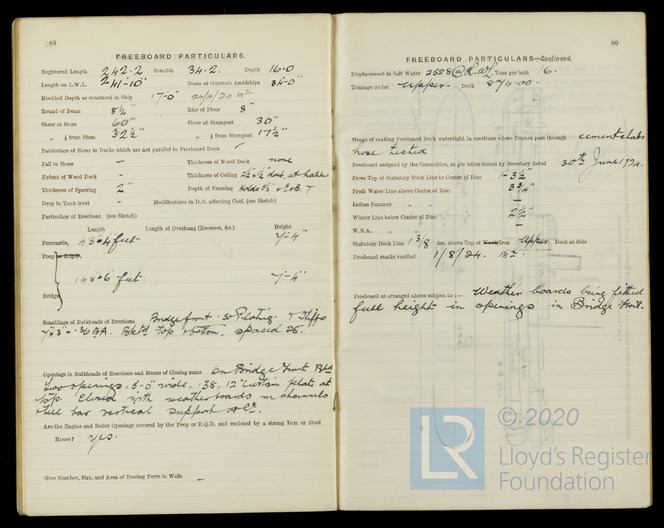 88
FREEBOARD PARTICULARS.
Registered Length 242.2 Breadth 34.2. Depth 16.0
Length on L.W.L. 241'-10" Beam at Gunwale Amidships 34'-0"
Moulded Depth as measured in Ship 17'-0" 24/4/24
Round of Beam 8½" Rise of Floor 8"
Sheer at Stem 60" Sheer at Sternpost 30"
" ⅛ from Stem 32½" " ⅛ from Sternpost 17½"
Particulars of Sheer in Decks which are not parallel to Freeboard Deck
Fall in Sheer – Thickness of Wood Deck none
Extent of Wood Deck – Thickness of Ceiling 2½" at hatches
Thickness of Sparring 2" Depth of Framing Holds
Drop in Tank level – Modifications in D.B. affecting Coef. (see Sketch)
Particulars of Erections (see Sketch)
Length Length of Overhang (Recesses, &c.) Height
Forecastle, 43.4 feet 7'-4"
Poop R.Q.D.
148.6 feet. 7'-4"
Bridge
Scantlings of Bulkheads of Erections Bridge front Plating. Stiffs
7"x3" .36 B.A. Bktd top & bottom. spaced 25.
Openings in Bulkheads of Erections and Means of Closing same On Bridge Front Bkhd
two openings, 5'-0" wide, .38, 12" curtain plate at
top. Closed with weatherboards in channels
steel bar vertical support at
Are the Engine and Boiler Openings covered by the Poop or R.Q.D. and enclosed by a strong Iron or Steel
House? Yes.
Give Number, Size, and Area of Freeing Ports in Wells –
89
FREEBOARD PARTICULARS—Continued.
Displacement in Salt Water 2528 @ L.W.L. Tons per inch 16.
Tonnage under Upper. Deck 874.00.
Means of making Freeboard Deck watertight in erections where Frames pass through cement chocks
hose tested
Freeboard assigned by the Committee, as per letter issued by Secretary dated 30th June 1924.
From Top of Statutory Deck Line to Centre of Disc 1'-3½"
Fresh Water Line above Centre of Disc 3¾"
Indian Summer " " –
Winter Line below Centre of Disc 2½"
W.N.A. " " –
Statutory Deck Line 1⅜ ins. above Top of Wood/Iron Upper Deck at Side
Freeboard marks verified 1/8/24.
Freeboard as arranged above subject to :— Weather boards being fitted
full height in openings in Bridge Front.
© 2020
LR
Lloyd's Register
Foundation